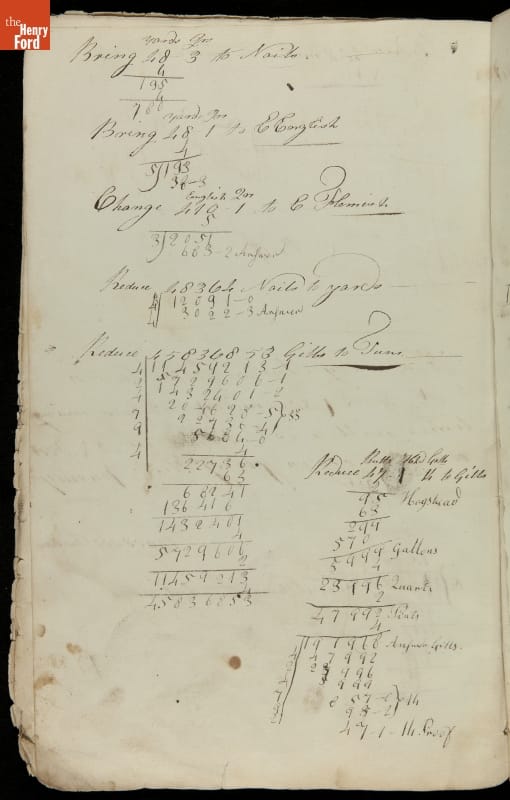 the
Henry
Ford
yards Qrs
Bring 48 - 3 to Nails
4
195
4
780
yards Qrs
Bring 48 1 to E English
4
5)193
38-3
English Qrs
Change 410-1 to E Flemish
5
3)2051
683-2 Answer
Reduce 48364 Nails to yards
4 12091-0
4 3022-3 Answer
Reduce 45836853 Gills to Tuns
4 11459213-1
2 5729606-1
4 1432401-2
7
9
4
4
22736
63
68241
136416
1432401
4
5729606
2
11459213
4
45836853
Butts Hhd Gills
Reduce 47-1 14 to Gills
95 Hogshead
63
299
570
5999 Gallons
4
23996 Quarts
2
47992 Pints
4
191968 Answer Gills.
47992
996
999
857-
95-2
47-1-14 Proof